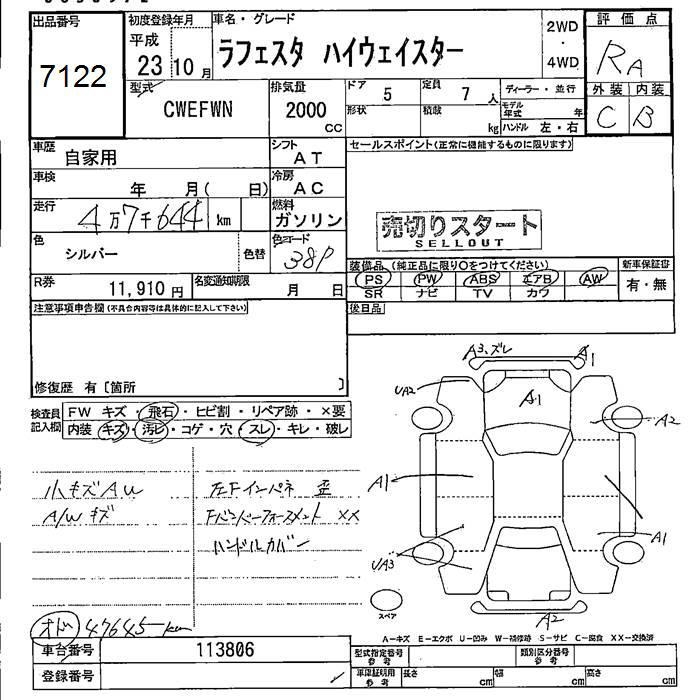 出品番号
7122
初度登録年月
平成
23年10月
車名・グレード
ラフェスタ ハイウェイスター
2WD
・
4WD
評価点
RA
外装 内装
C B
型式
CWEFWN
排気量
2000
cc
ドア 5
定員 7人
形状
積載 kg
ディーラー・並行
モデル年式 年
ハンドル 左・右
車歴
自家用
シフト
AT
セールスポイント(正常に機能するものに限ります)
車検
年 月( 日)
冷房
AC
走行
4万7千644 km
燃料
ガソリン
売切りスタート
SELLOUT
色
シルバー
色替
色コード
38P
装備品 (純正品に限り○をつけてください)
新車保証書
PS PW ABS エアB AW
SR ナビ TV カワ
有・無
R券
11,910 円
名変通知期限
月 日
後日品
注意事項申告欄(不具合内容等は具体的に記入して下さい)
修復歴 有〔箇所 〕
検査員
記入欄
FW キズ・飛石・ヒビ割・リペア跡・×要
内装 キズ・汚れ・コゲ・穴・スレ・キレ・破レ
小キズAU
A/Wキズ
左Fインパネ 歪
Fバンパーフォースメント XX
ハンドルカバー
オド 47645km
A3、ズレ
A1
UA2
A1
A2
A1
A1
UA3
A2
スペア
A-キズ E-エクボ U-凹み W-補修跡 S-サビ C-腐食 XX-交換済
車台番号
113806
登録番号
型式指定番号
参考
類別区分番号
参考
車庫証明用
参考
長さ cm
幅 cm
高さ cm